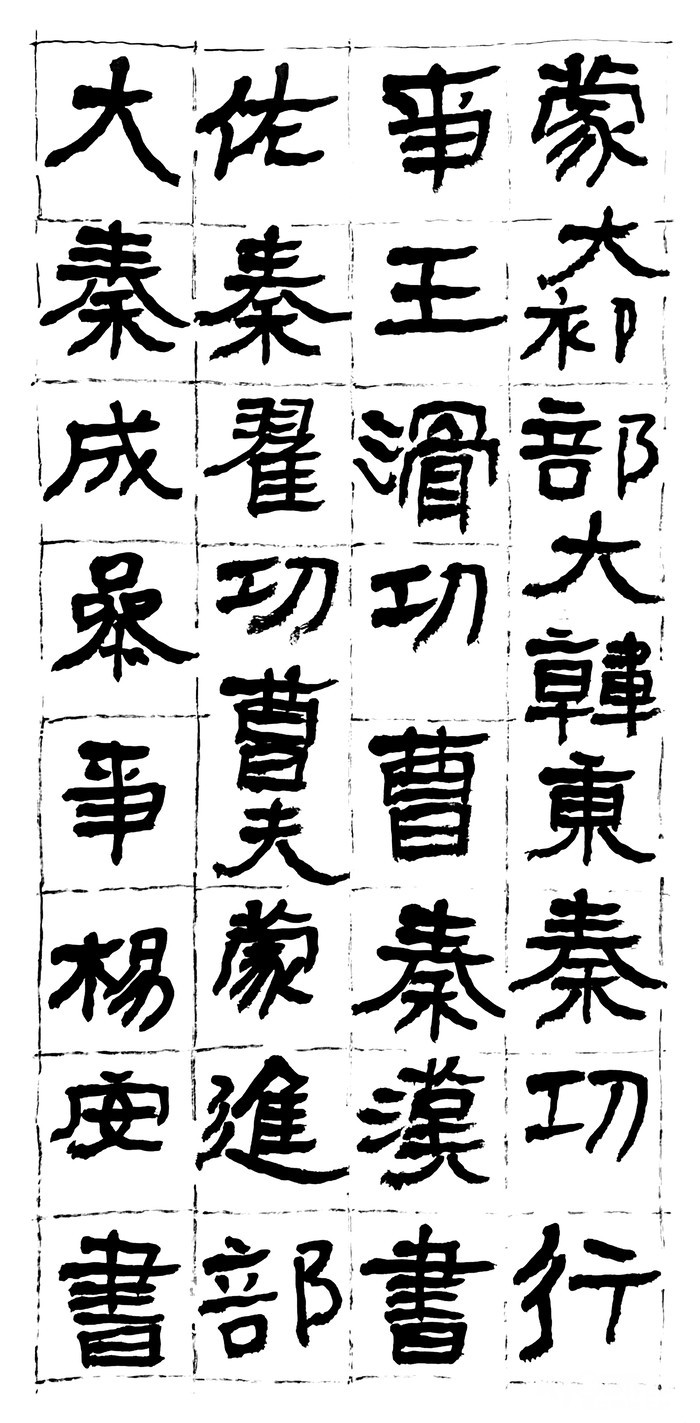 蒙大初部大韓東秦功行
事王滑功曹秦漢書
佐秦翟功曹夫蒙進部
大秦成參事楊安書